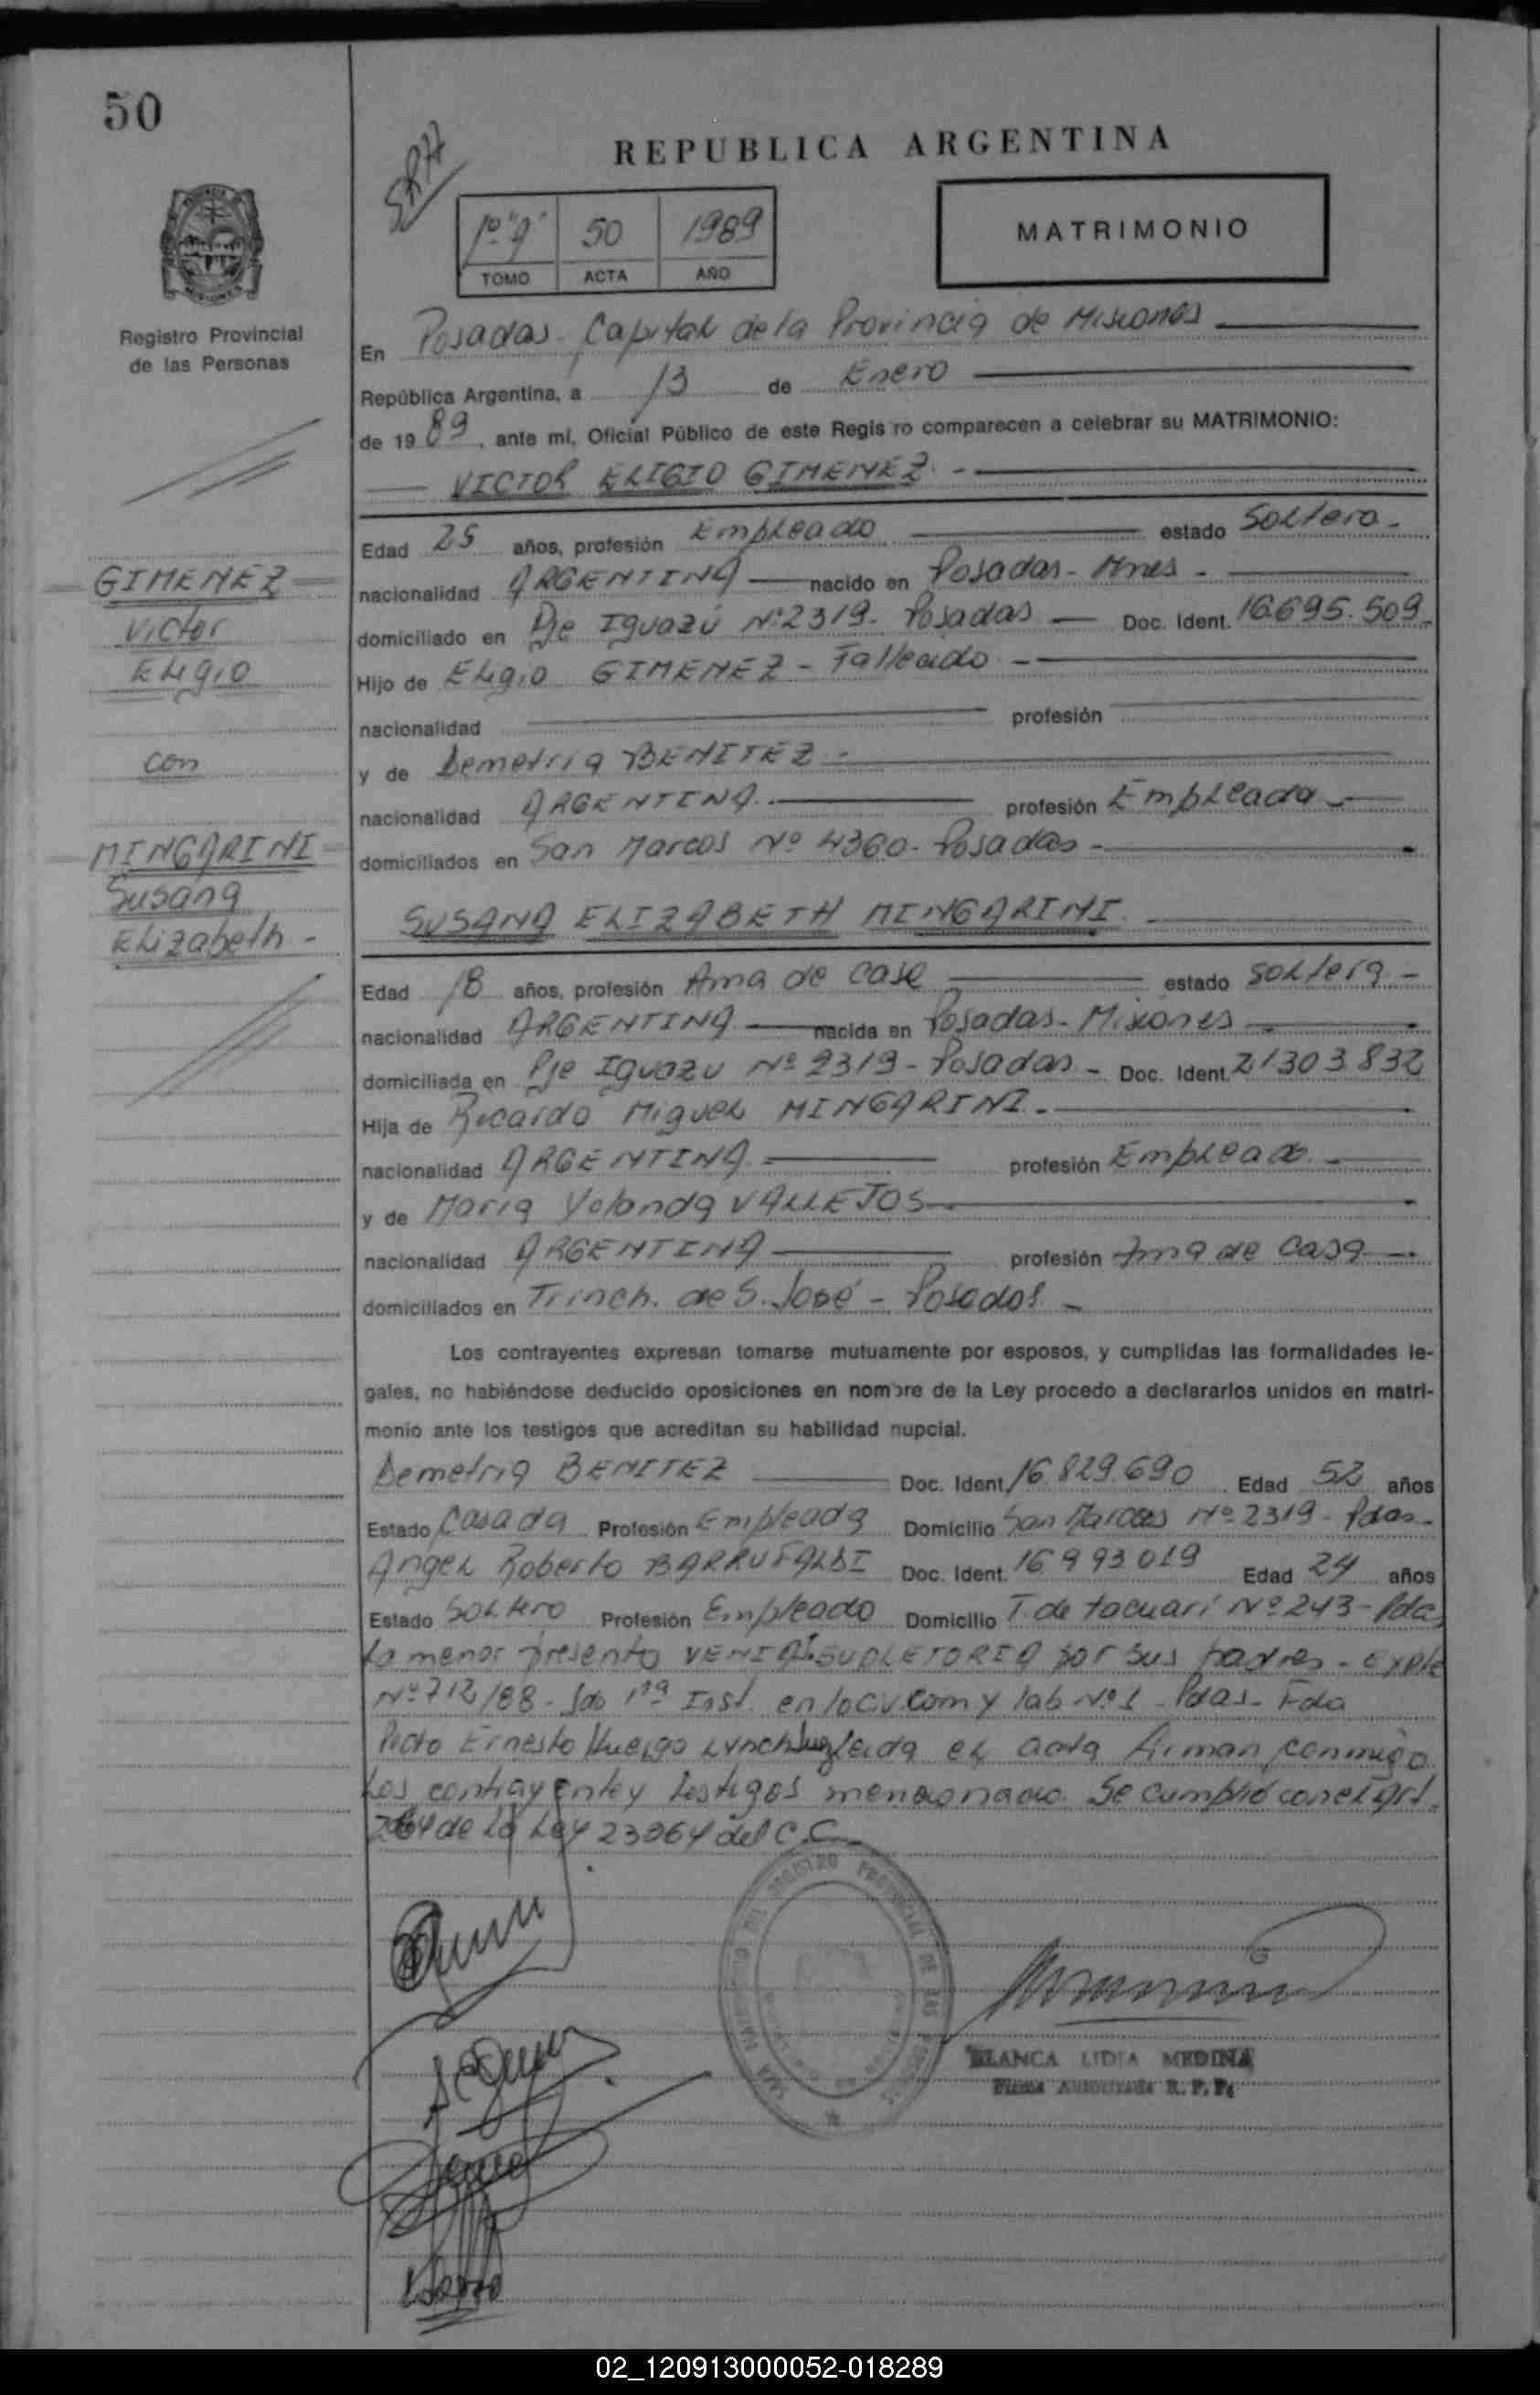 50
REPUBLICA ARGENTINA
1º "A" 50 1989
TOMO ACTA AÑO
MATRIMONIO
Registro Provincial
de las Personas
En Posadas - Capital de la Provincia de Misiones
República Argentina, a 13 de Enero
de 1989, ante mi, Oficial Público de este Regis ro comparecen a celebrar su MATRIMONIO:
VICTOR ELIGIO GIMENEZ. -
Edad 25 años, profesión Empleado estado Soltero. -
nacionalidad ARGENTINA nacido en Posadas - Mnes -
domiciliado en Pje Iguazú Nº 2319 - Posadas Doc. Ident. 16.695.509.
Hijo de Eligio GIMENEZ - Fallecido -
nacionalidad profesión
y de Demetria BENITEZ -
nacionalidad ARGENTINA. profesión Empleada
domiciliados en San Marcos Nº 4360 - Posadas -
GIMENEZ
Victor
Eligio
con
MINGARINI
Susana
Elizabeth -
SUSANA ELIZABETH MINGARINI.
Edad 18 años, profesión Ama de casa estado soltera -
nacionalidad ARGENTINA nacida en Posadas - Misiones
domiciliada en Pje Iguazu Nº 2319 - Posadas - Doc. Ident. 21303832
Hija de Ricardo Miguel MINGARINI -
nacionalidad ARGENTINA - profesión Empleado -
y de Maria Yolanda VALLEJOS
nacionalidad ARGENTINA profesión Ama de casa
domiciliados en Trinch. de S. José - Posadas -
Los contrayentes expresan tomarse mutuamente por esposos, y cumplidas las formalidades le-
gales, no habiéndose deducido oposiciones en nombre de la Ley procedo a declararlos unidos en matri-
monio ante los testigos que acreditan su habilidad nupcial.
Demetria BENITEZ Doc. Ident. 16.829.690 Edad 52 años
Estado Casada Profesión Empleada Domicilio San Marcos Nº 2319 - Pdas -
Angel Roberto BARRUFALDI Doc. Ident. 16993019 Edad 24 años
Estado Soltero Profesión Empleado Domicilio T. de tacuari Nº 243 - Pdas
La menor presento VENIA SUPLETORIA por sus padres - Expte
Nº 712/88 - 1ra Inst. en lo Civ. Com y lab Nº 1 - Pdas - Fdo
Ernesto Huergo Lynch leida el acta firman conmigo
Los contrayentes y testigos mencionados. Se cumplio con el Art.
de la Ley 23064 del C.C.
BLANCA LIDIA MEDINA
Firma Autorizada R. P. P.
02_120913000052-018289